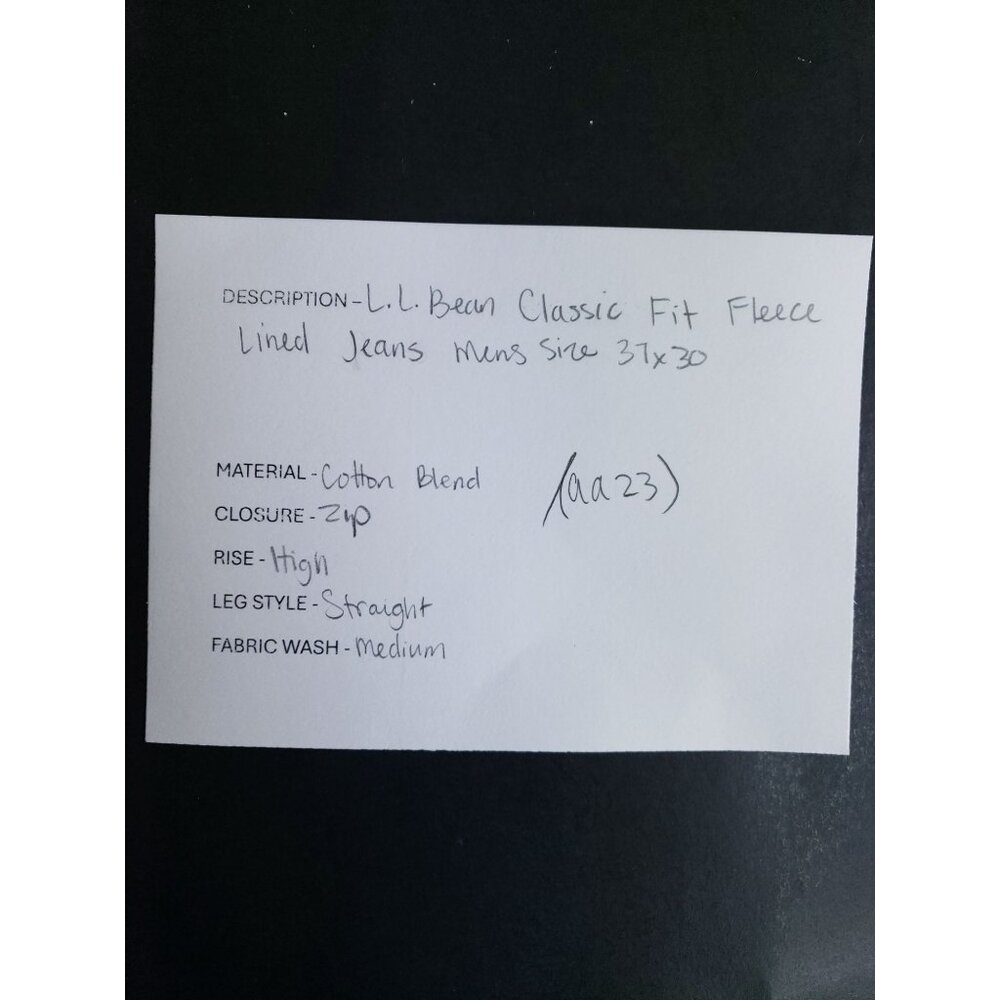 DESCRIPTION - L.L. Bean Classic Fit Fleece
Lined Jeans Mens Size 37x30
MATERIAL - Cotton Blend
(aa23)
CLOSURE - Zip
RISE - High
LEG STYLE - Straight
FABRIC WASH - Medium